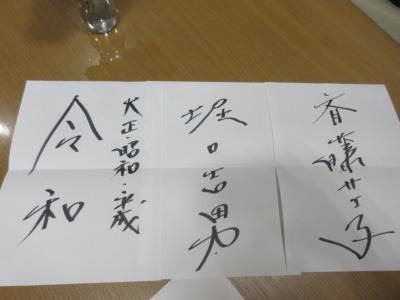 斉藤サエ子
堀口吉男
大正・昭和・平成
令和